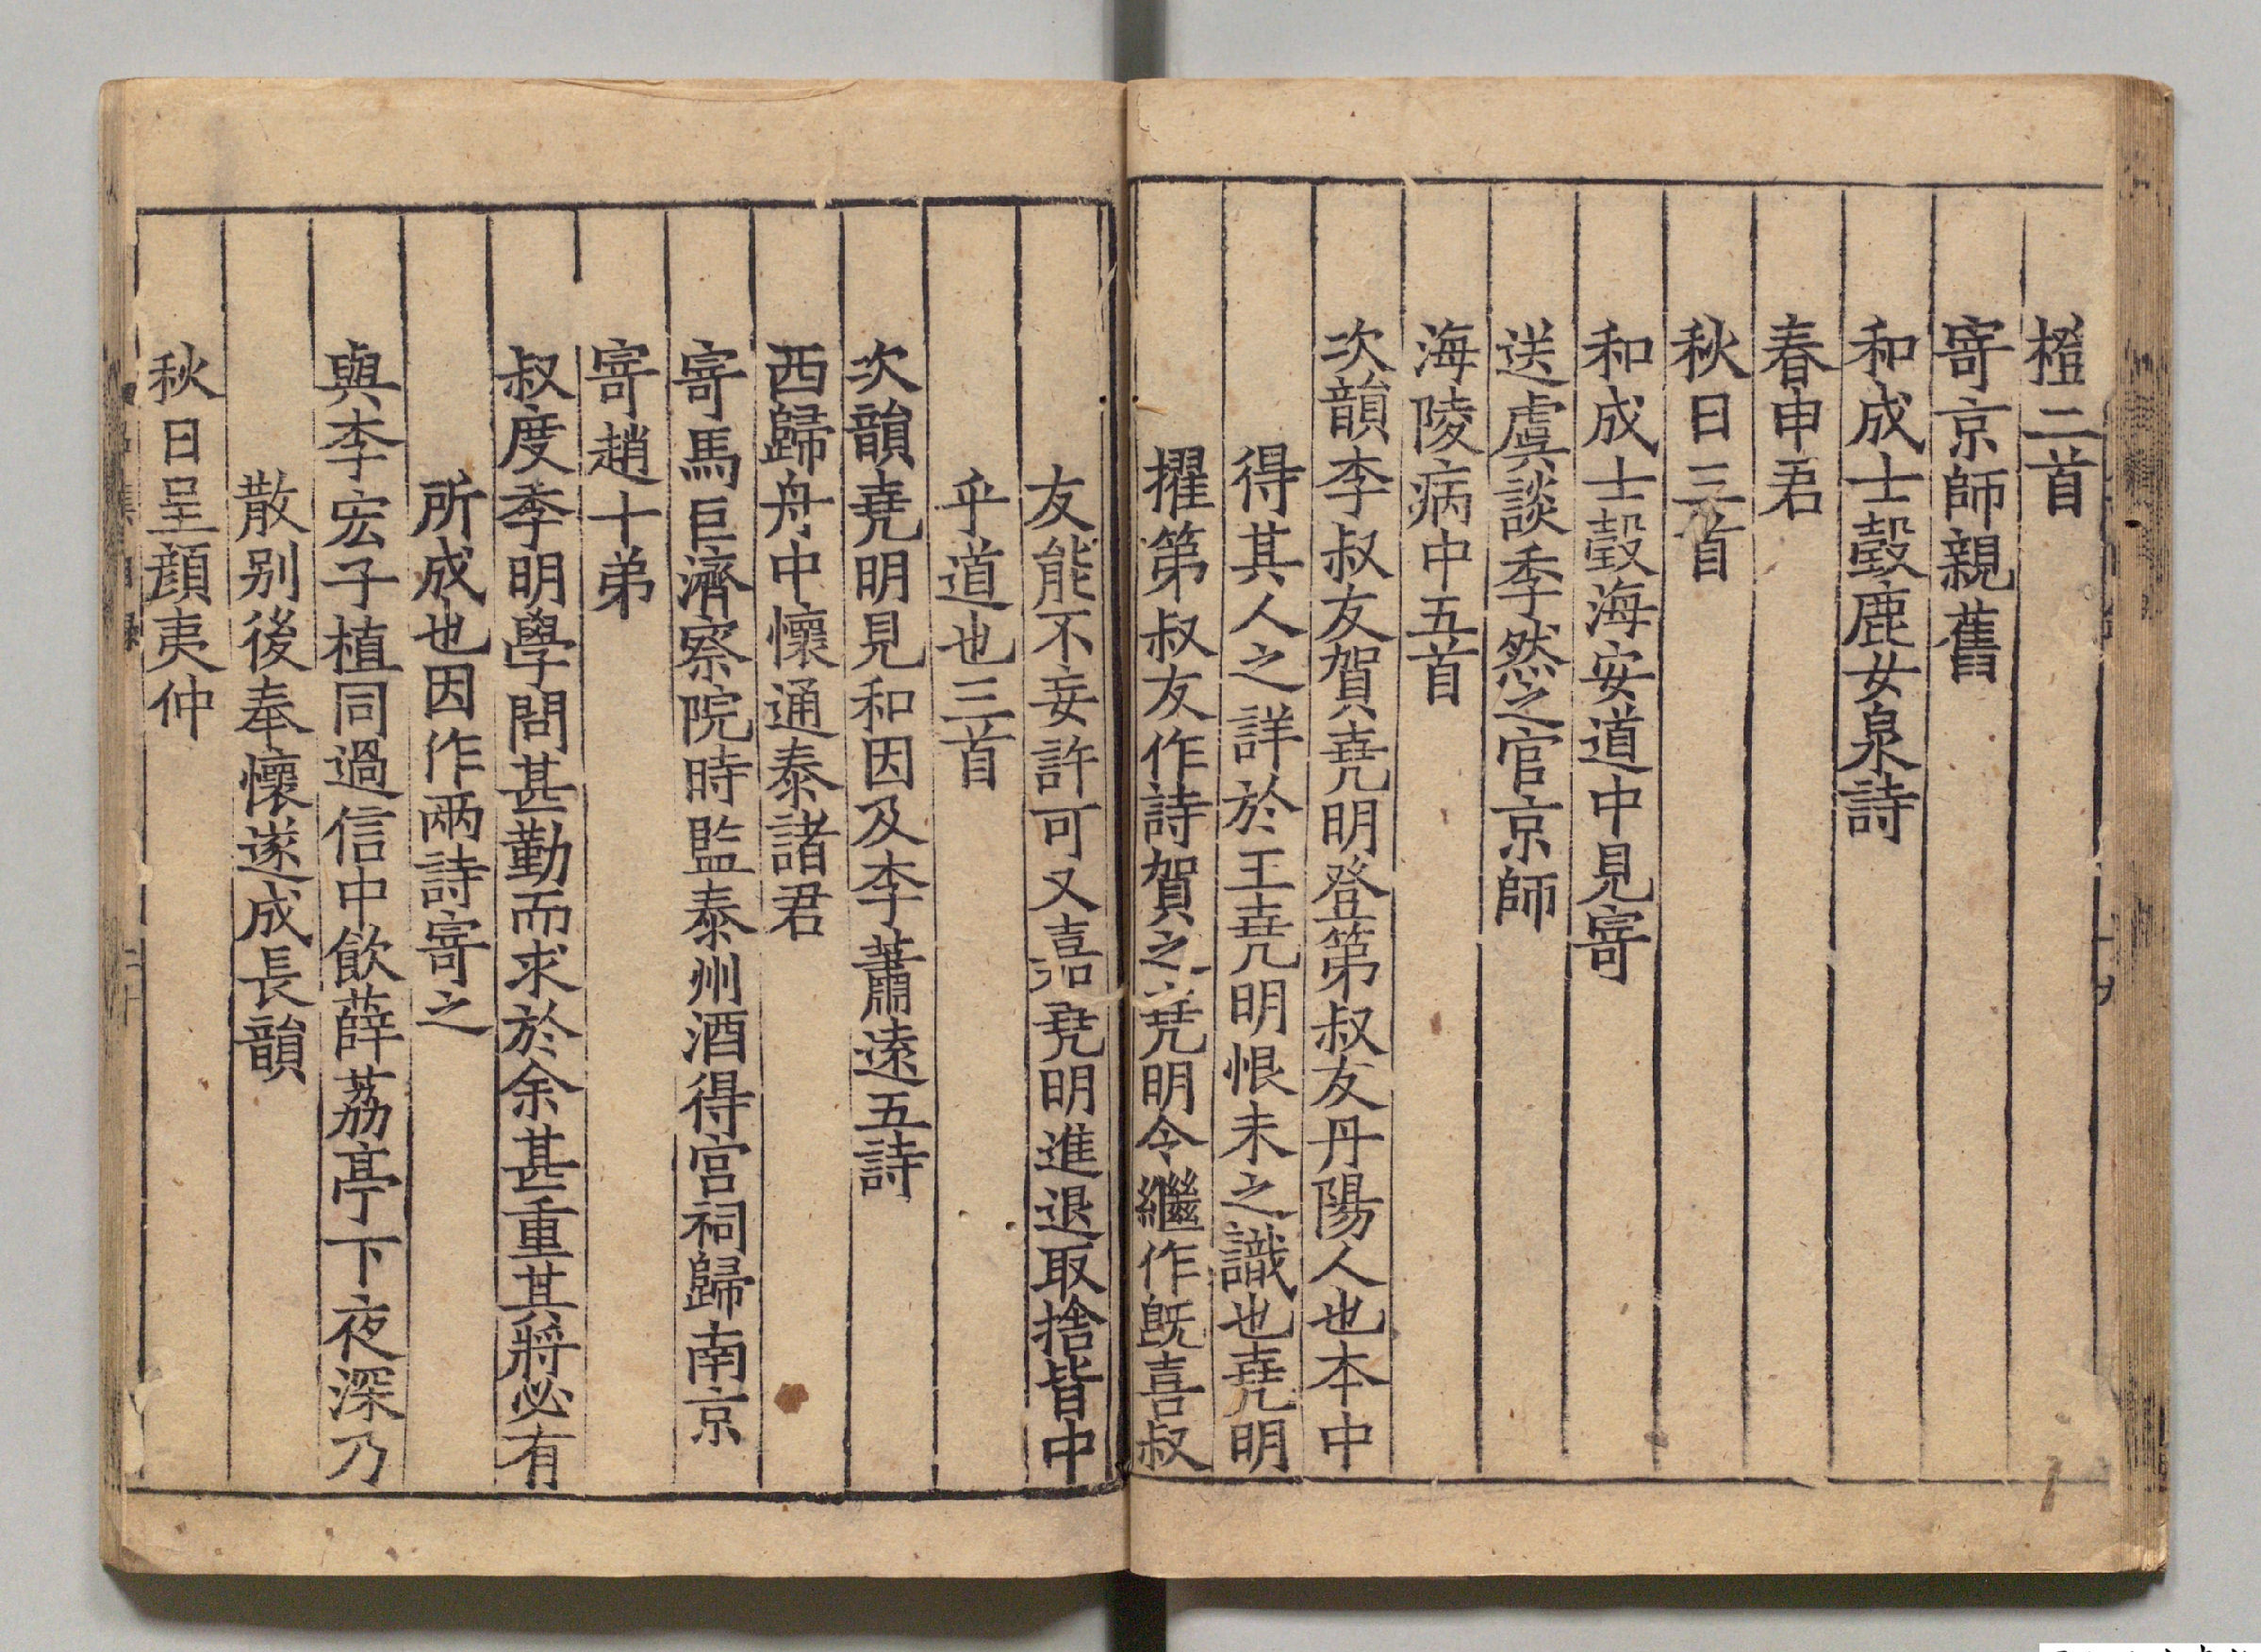 橙二首
寄京師親舊
和成士瑴鹿女泉詩
春申君
秋日三首
和成士瑴海安道中見寄
送虞談季然之官京師
海陵病中五首
次韻李叔友賀堯明登第叔友丹陽人也本中
得其人之詳於王堯明恨未之識也堯明
擢第叔友作詩賀之堯明令繼作旣喜叔
友能不妄許可又嘉堯明進退取捨皆中
乎道也三首
次韻堯明見和因及李蕭遠五詩
西歸舟中懷通泰諸君
寄馬巨濟察院時監泰州酒得宫祠歸南京
寄趙十弟
叔度季明學問甚勤而求於余甚重其將必有
所成也因作兩詩寄之
與李宏子植同過信中飲薜荔亭下夜深乃
散别後奉懷遂成長韻
秋日呈顔夷仲